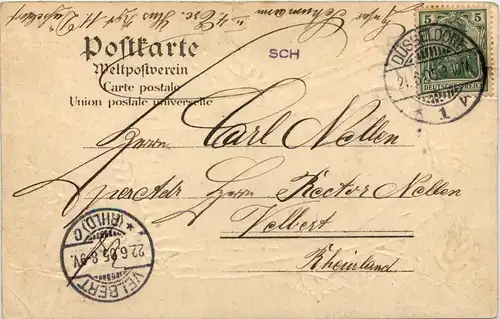 Postkarte
Weltpostverein
Carte postale
Union postale universelle
SCH
5 5
DEUTSCHES REICH
DÜSSELDORF
1
Herrn Carl Nellen
per Adr Herrn Rector Nellen
Velbert
Rheinland
VELBERT
(RHLD) C
22.6.05.8-9V.